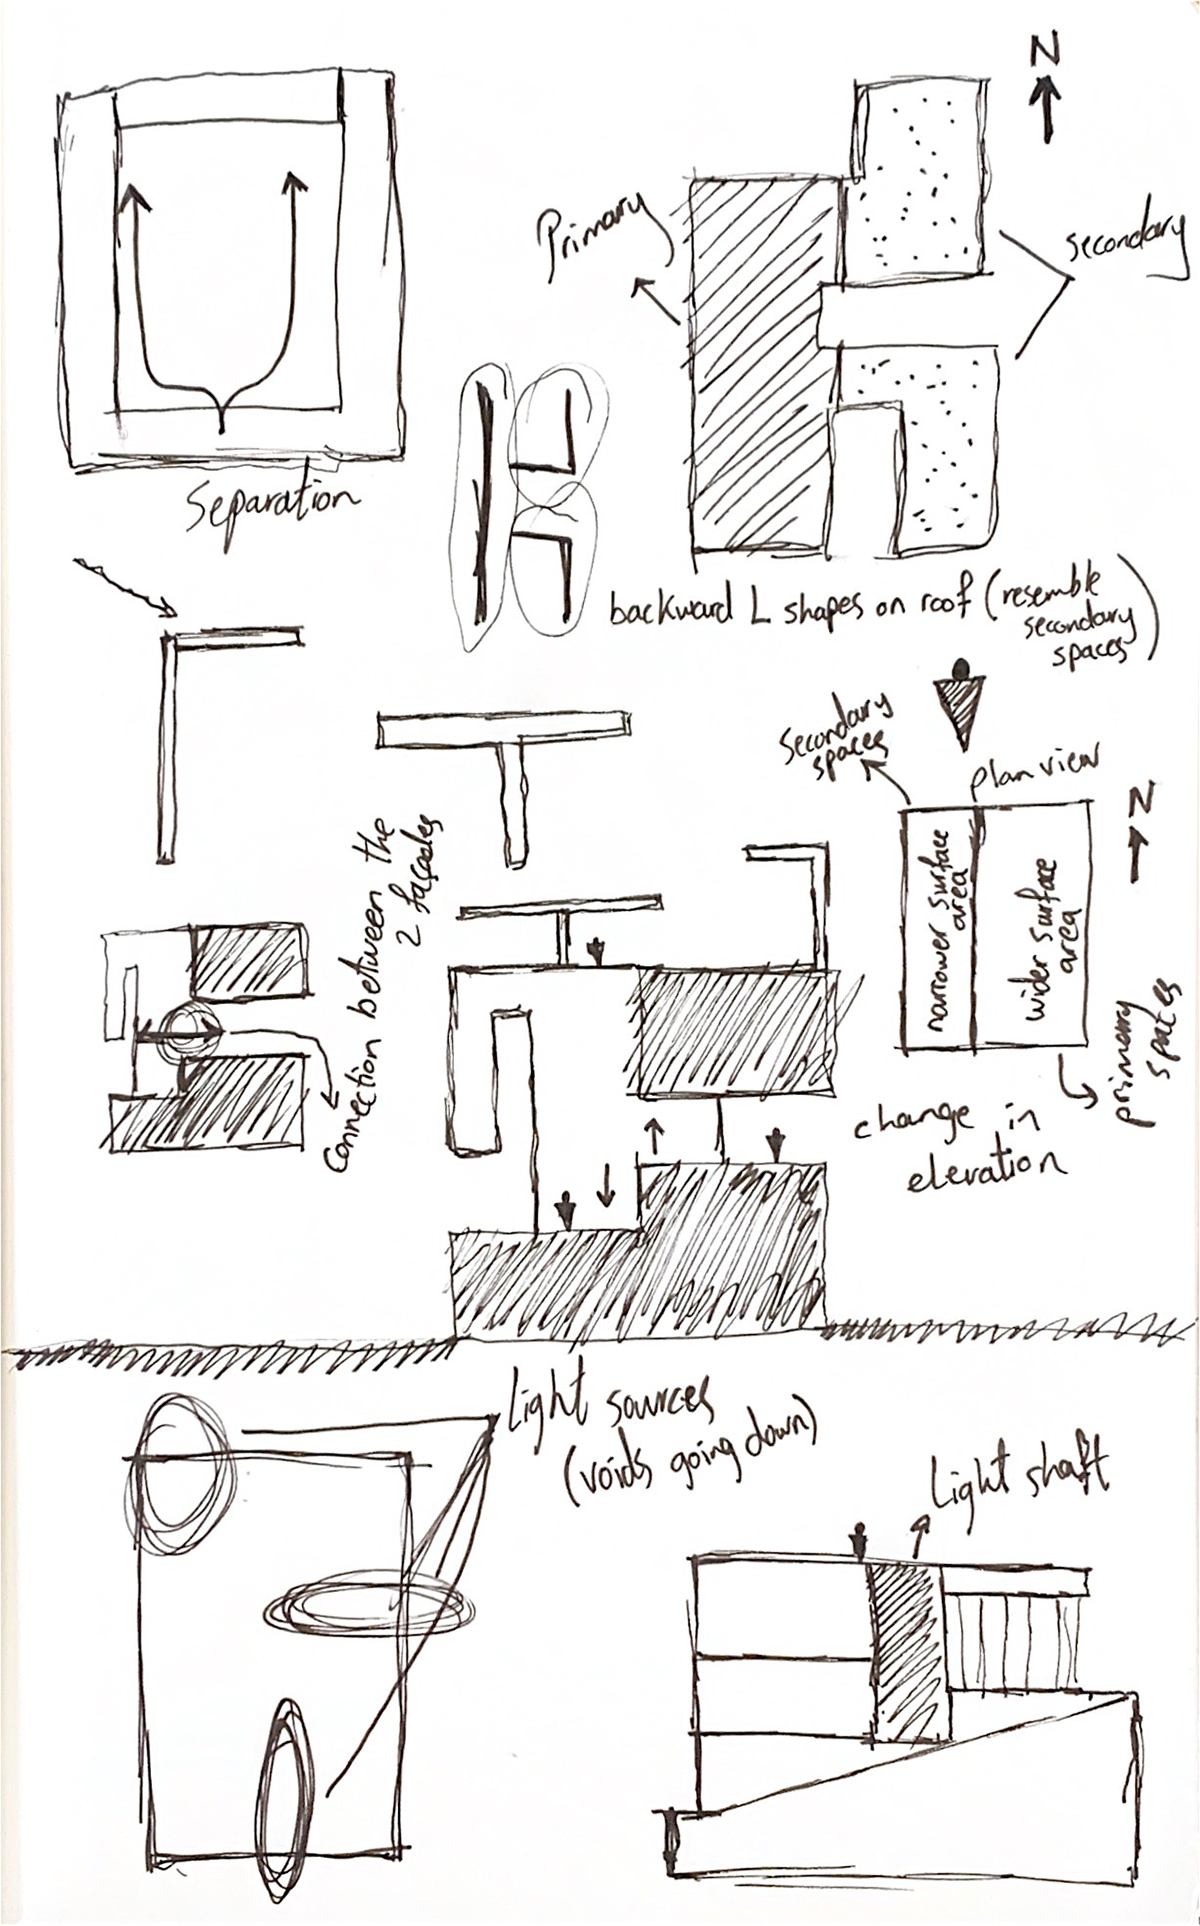 N
Primary
secondary
Separation
backward L shapes on roof (resemble
secondary
spaces)
Secondary
spaces
plan view
N
narrower surface
area
wider surface
area
primary
spaces
Connection between the
2 façades
change in
elevation
Light sources
(voids going down)
Light shaft